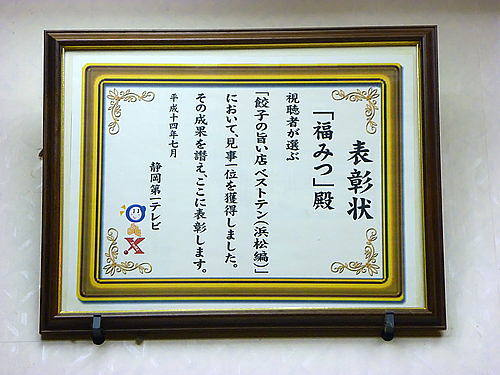 表彰状
「福みつ」殿
視聴者が選ぶ
「餃子の旨い店ベストテン（浜松編）」
において、見事一位を獲得しました。
その成果を讃え、ここに表彰します。
平成十四年七月
静岡第一テレビ